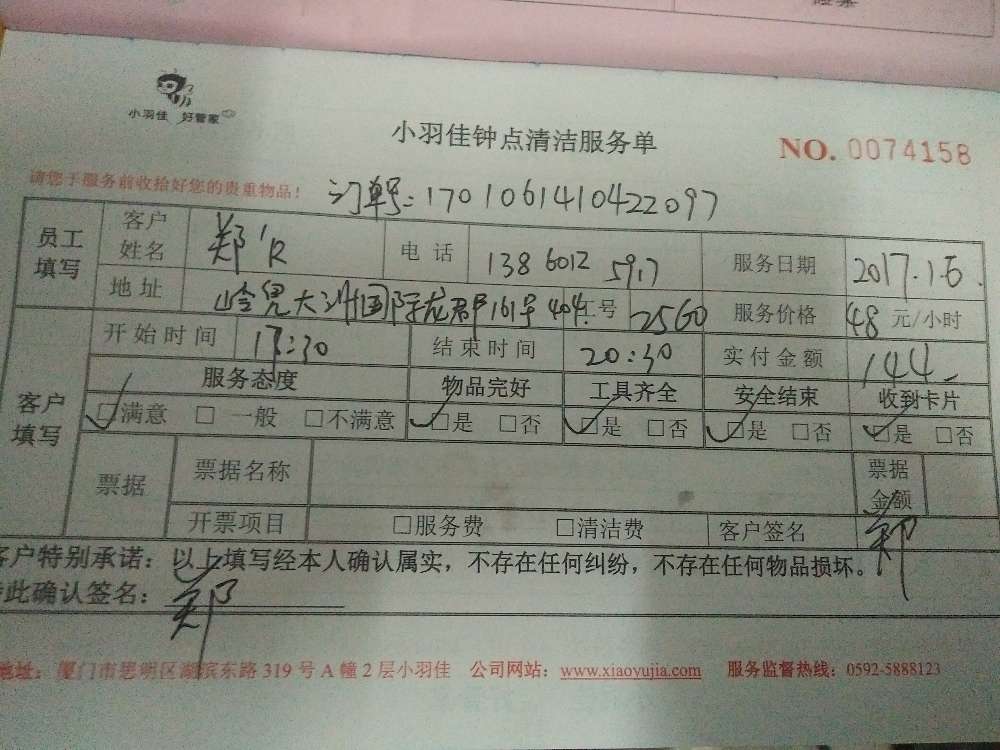 小羽佳 好管家
小羽佳钟点清洁服务单
NO. 0074158
请您于服务前收拾好您的贵重物品！
订单号：17010614104222097
员工填写
客户姓名 郑 电话 138 6012 5917 服务日期 2017.1.6.
地址 大洲国际龙郡161号404 工号 2560 服务价格 48 元/小时
客户填写
开始时间 17:30 结束时间 20:30 实付金额 144
服务态度 物品完好 工具齐全 安全结束 收到卡片
☑满意 □一般 □不满意 ☑是 □否 ☑是 □否 ☑是 □否 ☑是 □否
票据 票据名称 票据金额
开票项目 □服务费 □清洁费 客户签名 郑
客户特别承诺：以上填写经本人确认属实，不存在任何纠纷，不存在任何物品损坏。
此确认签名：郑
地址：厦门市思明区湖滨东路 319 号 A 幢 2 层小羽佳 公司网站：www.xiaoyujia.com 服务监督热线：0592-5888123